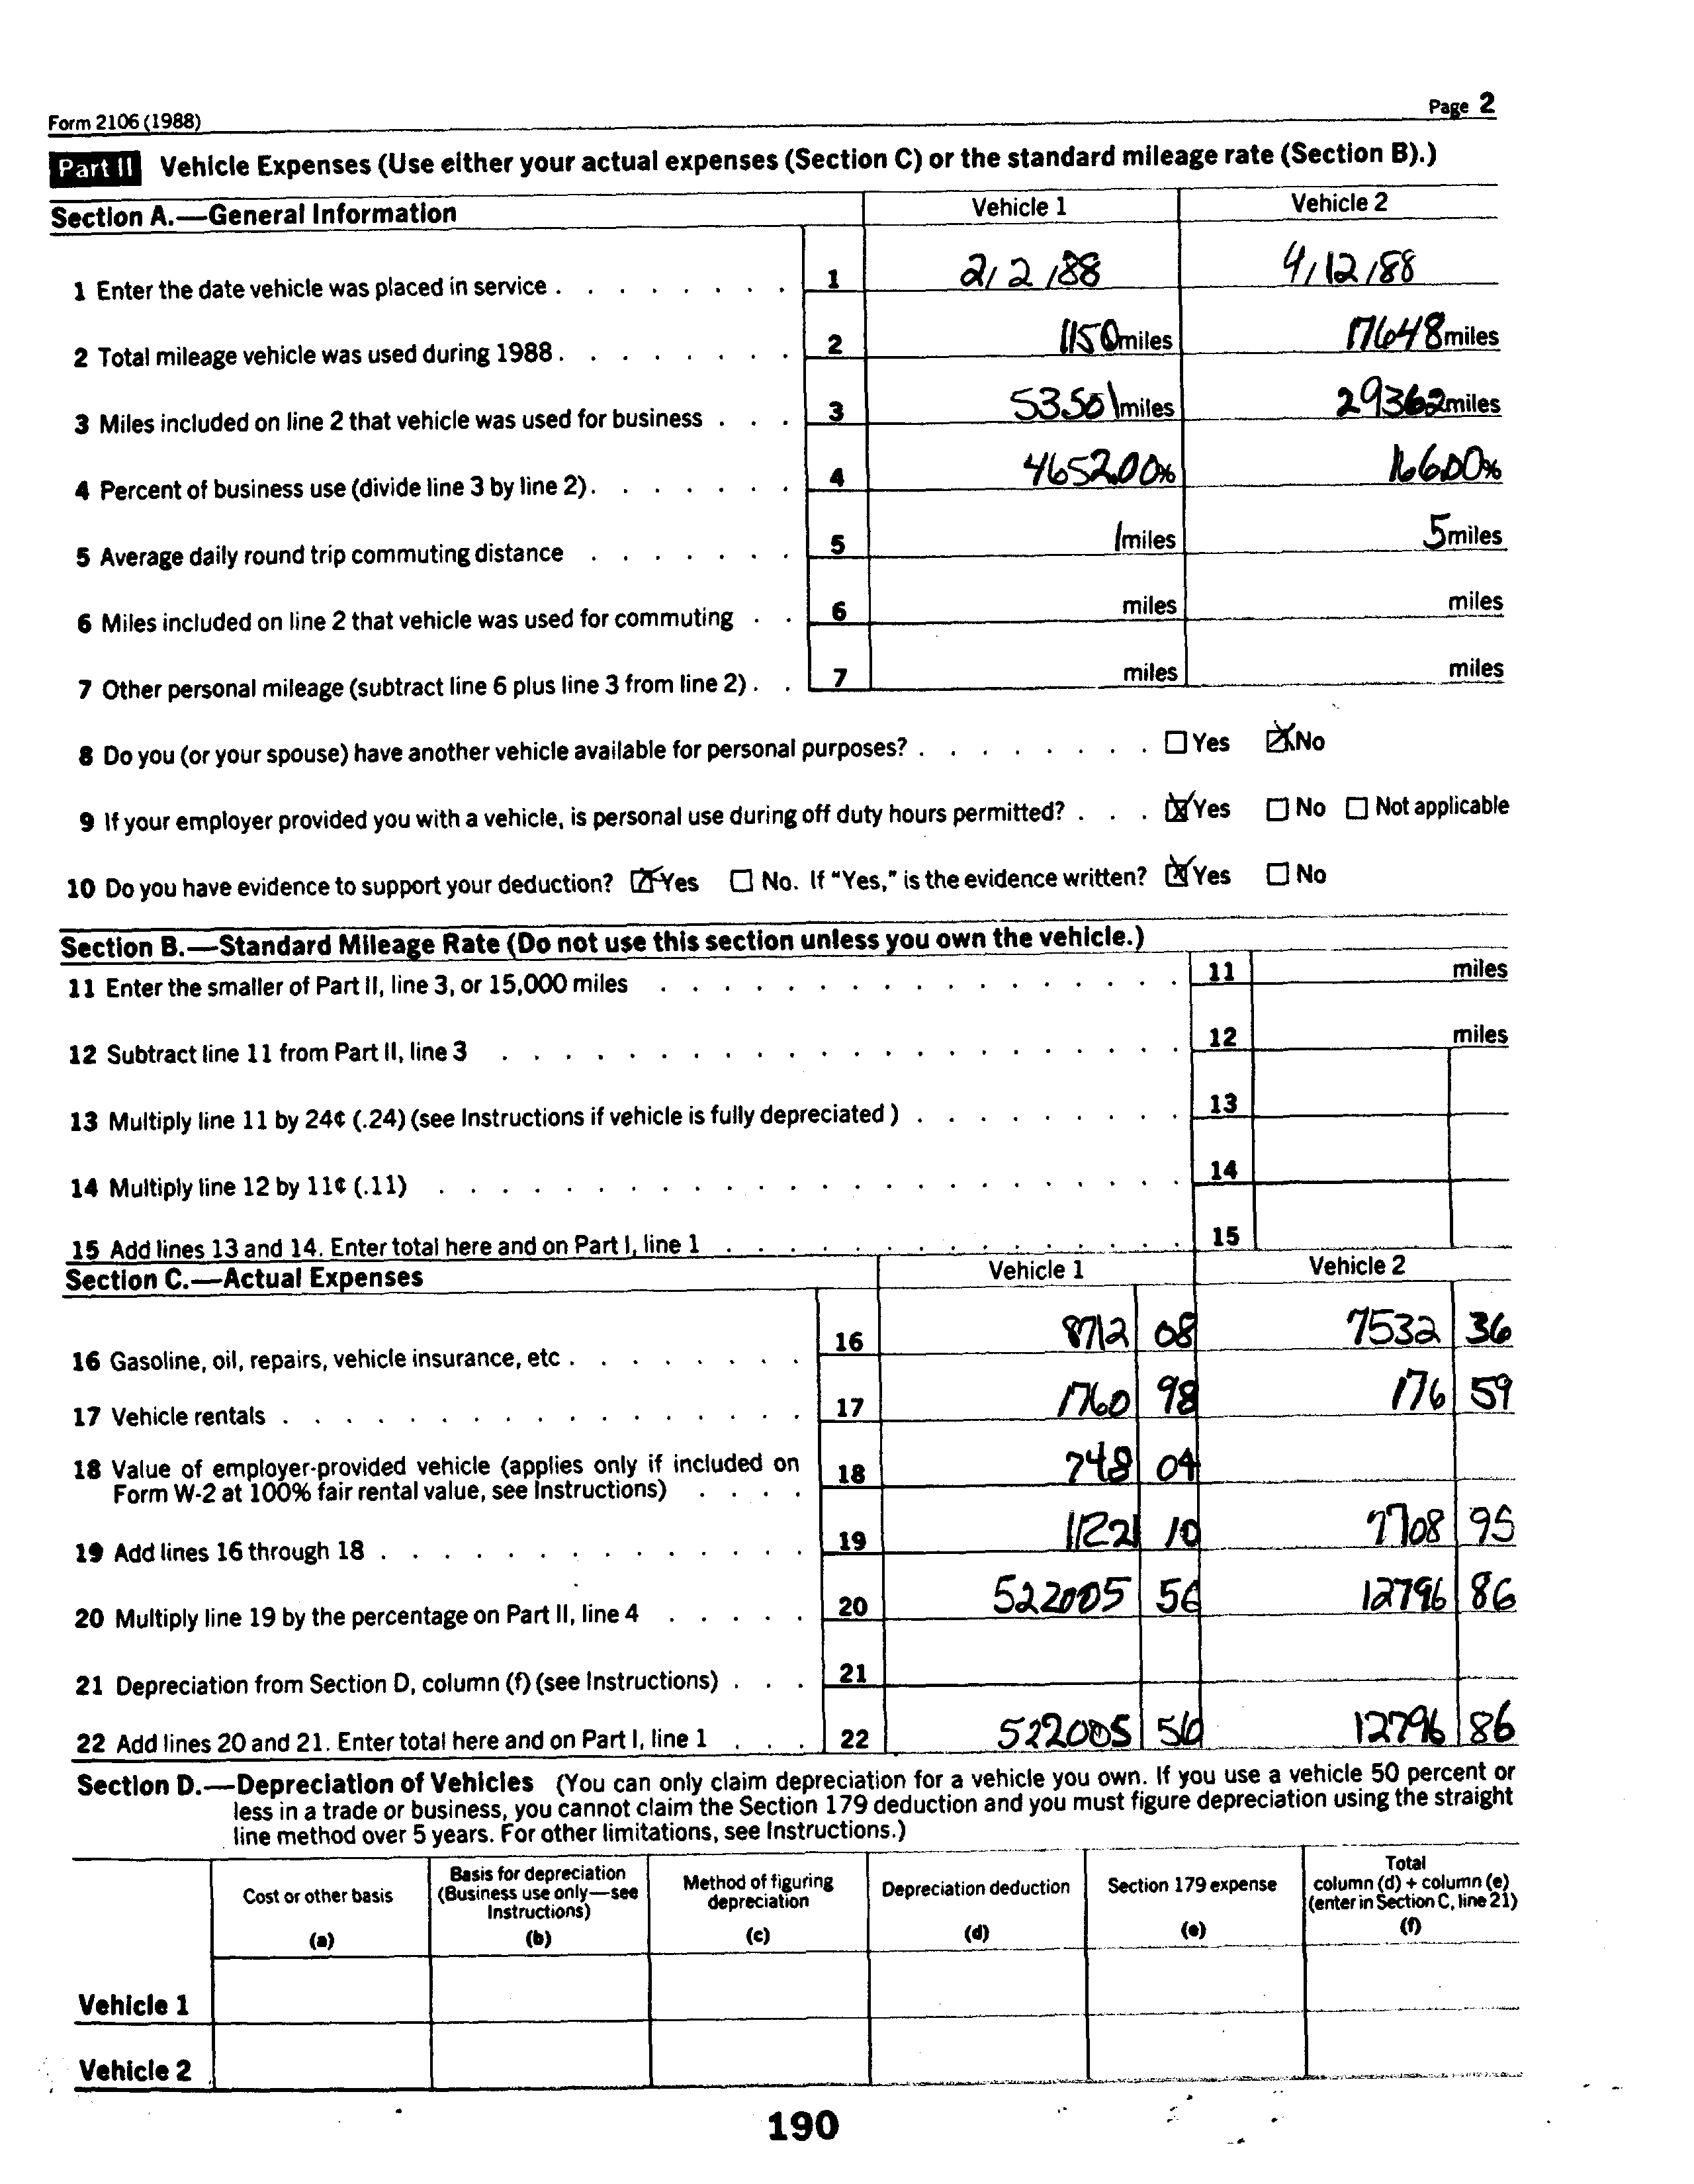 Form 2106 (1988) Page 2
Part II Vehicle Expenses (Use either your actual expenses (Section C) or the standard mileage rate (Section B).)
Section A.—General Information Vehicle 1 Vehicle 2
1 Enter the date vehicle was placed in service . . . . . . . . 1 2/2/88 4/12/88
2 Total mileage vehicle was used during 1988 . . . . . . . . 2 1150 miles 17648 miles
3 Miles included on line 2 that vehicle was used for business . . . 3 53501 miles 29362 miles
4 Percent of business use (divide line 3 by line 2) . . . . . . . 4 4652.00% 166.00%
5 Average daily round trip commuting distance . . . . . . . 5 1 miles 5 miles
6 Miles included on line 2 that vehicle was used for commuting . . 6 miles miles
7 Other personal mileage (subtract line 6 plus line 3 from line 2) . . 7 miles miles
8 Do you (or your spouse) have another vehicle available for personal purposes? . . . . . . . . ☐ Yes ☒ No
9 If your employer provided you with a vehicle, is personal use during off duty hours permitted? . . . ☒ Yes ☐ No ☐ Not applicable
10 Do you have evidence to support your deduction? ☒ Yes ☐ No. If "Yes," is the evidence written? ☒ Yes ☐ No
Section B.—Standard Mileage Rate (Do not use this section unless you own the vehicle.)
11 Enter the smaller of Part II, line 3, or 15,000 miles . . . . . . . . . . . . . . . . . 11 miles
12 Subtract line 11 from Part II, line 3 . . . . . . . . . . . . . . . . . . . . . . 12 miles
13 Multiply line 11 by 24¢ (.24) (see Instructions if vehicle is fully depreciated ) . . . . . . . . . 13
14 Multiply line 12 by 11¢ (.11) . . . . . . . . . . . . . . . . . . . . . . . . 14
15 Add lines 13 and 14. Enter total here and on Part I, line 1 . . . . . . . . . . . . . . . 15
Section C.—Actual Expenses Vehicle 1 Vehicle 2
16 Gasoline, oil, repairs, vehicle insurance, etc . . . . . . . . 16 8712 08 7532 36
17 Vehicle rentals . . . . . . . . . . . . . . . . . 17 1760 98 176 59
18 Value of employer-provided vehicle (applies only if included on
Form W-2 at 100% fair rental value, see Instructions) . . . . 18 748 04
19 Add lines 16 through 18 . . . . . . . . . . . . . . 19 11221 10 7708 95
20 Multiply line 19 by the percentage on Part II, line 4 . . . . . 20 522005 56 12796 86
21 Depreciation from Section D, column (f) (see Instructions) . . . 21
22 Add lines 20 and 21. Enter total here and on Part I, line 1 . . . 22 522005 56 12796 86
Section D.—Depreciation of Vehicles (You can only claim depreciation for a vehicle you own. If you use a vehicle 50 percent or
less in a trade or business, you cannot claim the Section 179 deduction and you must figure depreciation using the straight
line method over 5 years. For other limitations, see Instructions.)
Cost or other basis
(a)
Basis for depreciation
(Business use only—see
Instructions)
(b)
Method of figuring
depreciation
(c)
Depreciation deduction
(d)
Section 179 expense
(e)
Total
column (d) + column (e)
(enter in Section C, line 21)
(f)
Vehicle 1
Vehicle 2
190